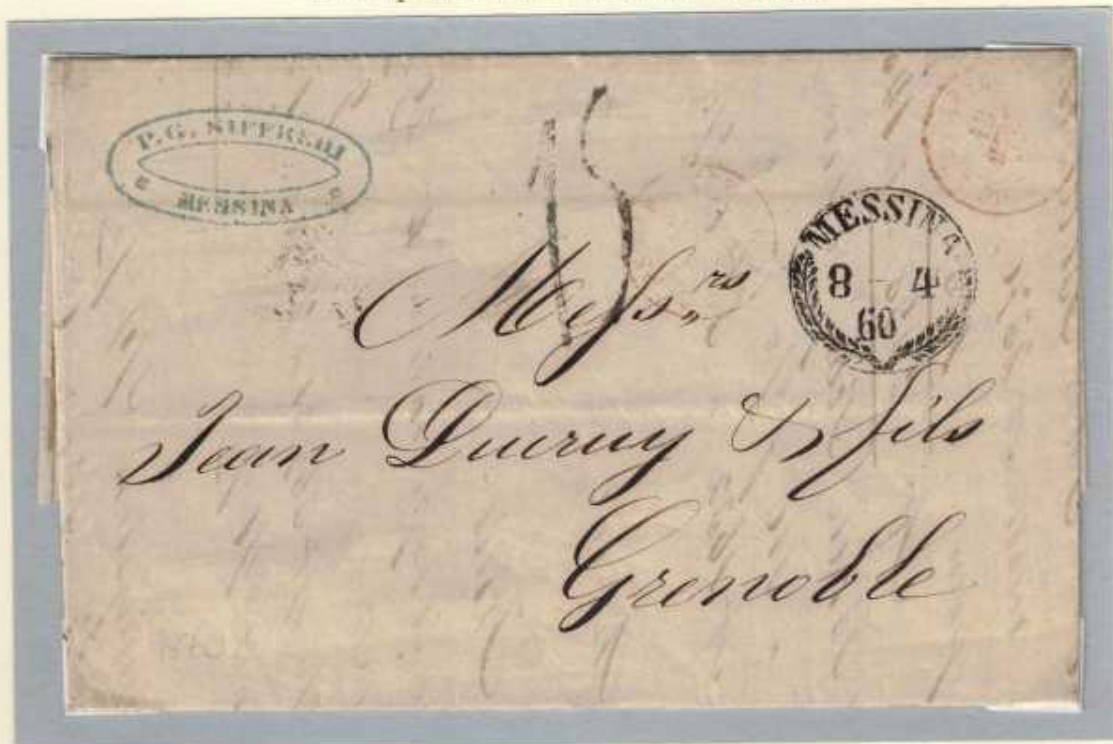 P.G. SIFFREDI
MESSINA
15
MESSINA
8 - 4
60
Messrs
Jean Ducruy & fils
Grenoble